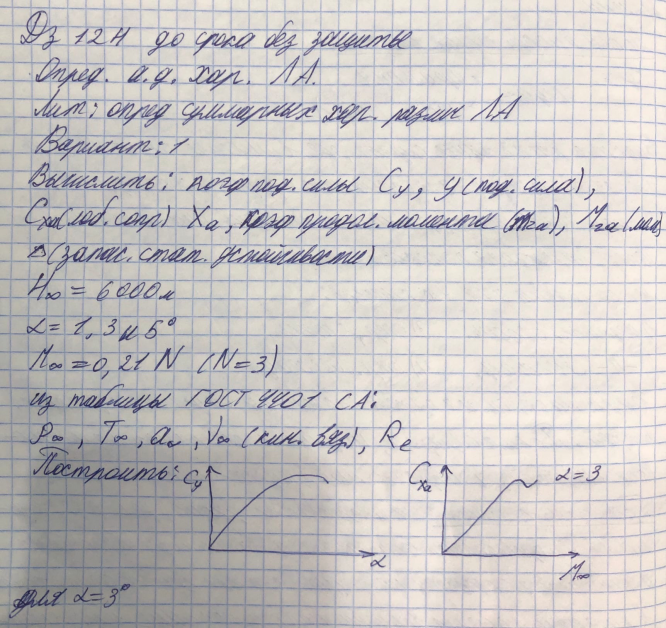 Дз 12Н до срока без защиты
Опред. а.д. хар. ЛА.
Лит: опред суммарных хар. разли ЛА
Вариант: 1
Вычислить: коэф под. силы Cy, y (под. сила),
Cxa(лоб. сопр) Xa, коэф продол. момента (mza), Mza (мом)
Δ (запас. стат. устойчивости)
H∞ = 6000м
α = 1, 3 и 5°
M∞ = 0,21 N (N=3)
из таблицы ГОСТ 4401 СА:
ρ∞, T∞, a∞, ν∞ (кин. вяз), Re
Построить: Cy α Cxa M∞ α=3
для α=3°